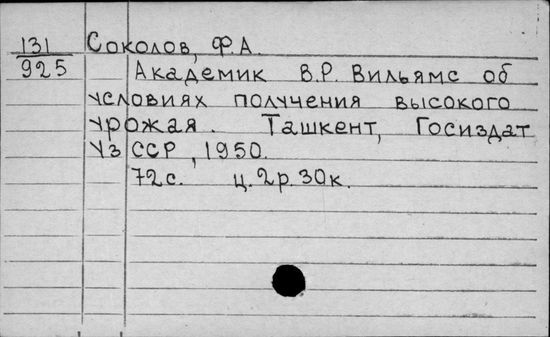 131 Соколов, Ф.А.
925 Академик В.Р. Вильямс об
условиях получения высокого
урожая. Ташкент, Госиздат
Уз ССР, 1950.
72с. ц. 2р. 30к.